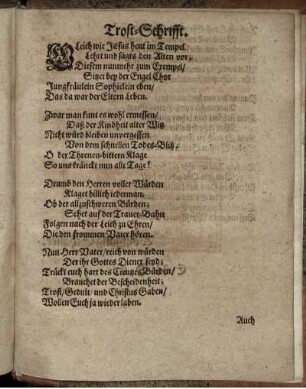 Trost-Schrifft.
Gleich wie Jesus heut im Tempel
Lehrt und sagts den Alten vor;
Diesem nunmehr zum Exempel/
Sitzt bey der Engel Chor
Jungfräulein Sophielein eben/
Das da war der Eltern Leben.
Zwar man kunt es wohl ermessen/
Daß der Kindheit alter Witz
Nicht würd bleiben unvergessen
Von dem schnellen Todes-Blitz;
O der Threnen-bittern Klage
So uns kränckt nun alle Tage!
Drumb den Herren voller Würden
Klaget billich jederman/
Ob der allzuschweren Bürden;
Sehet auf der Trauer-Bahn
Folgen nach der Leich zu Ehren/
Die den frommen Vater hören.
Nun Herr Vater/ reich von würden
Der ihr Gottes Diener seyd;
Trückt euch hart des Creutzes Bürden/
Brauchet der Bescheidenheit;
Trost/ Gedult/ und Christus Gaben/
Wollen Euch ja wieder laben.
Auch